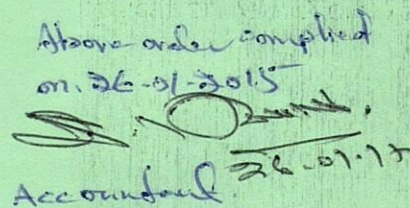 Above order complied
on. 26-01-2015
26-01-15
Accountant